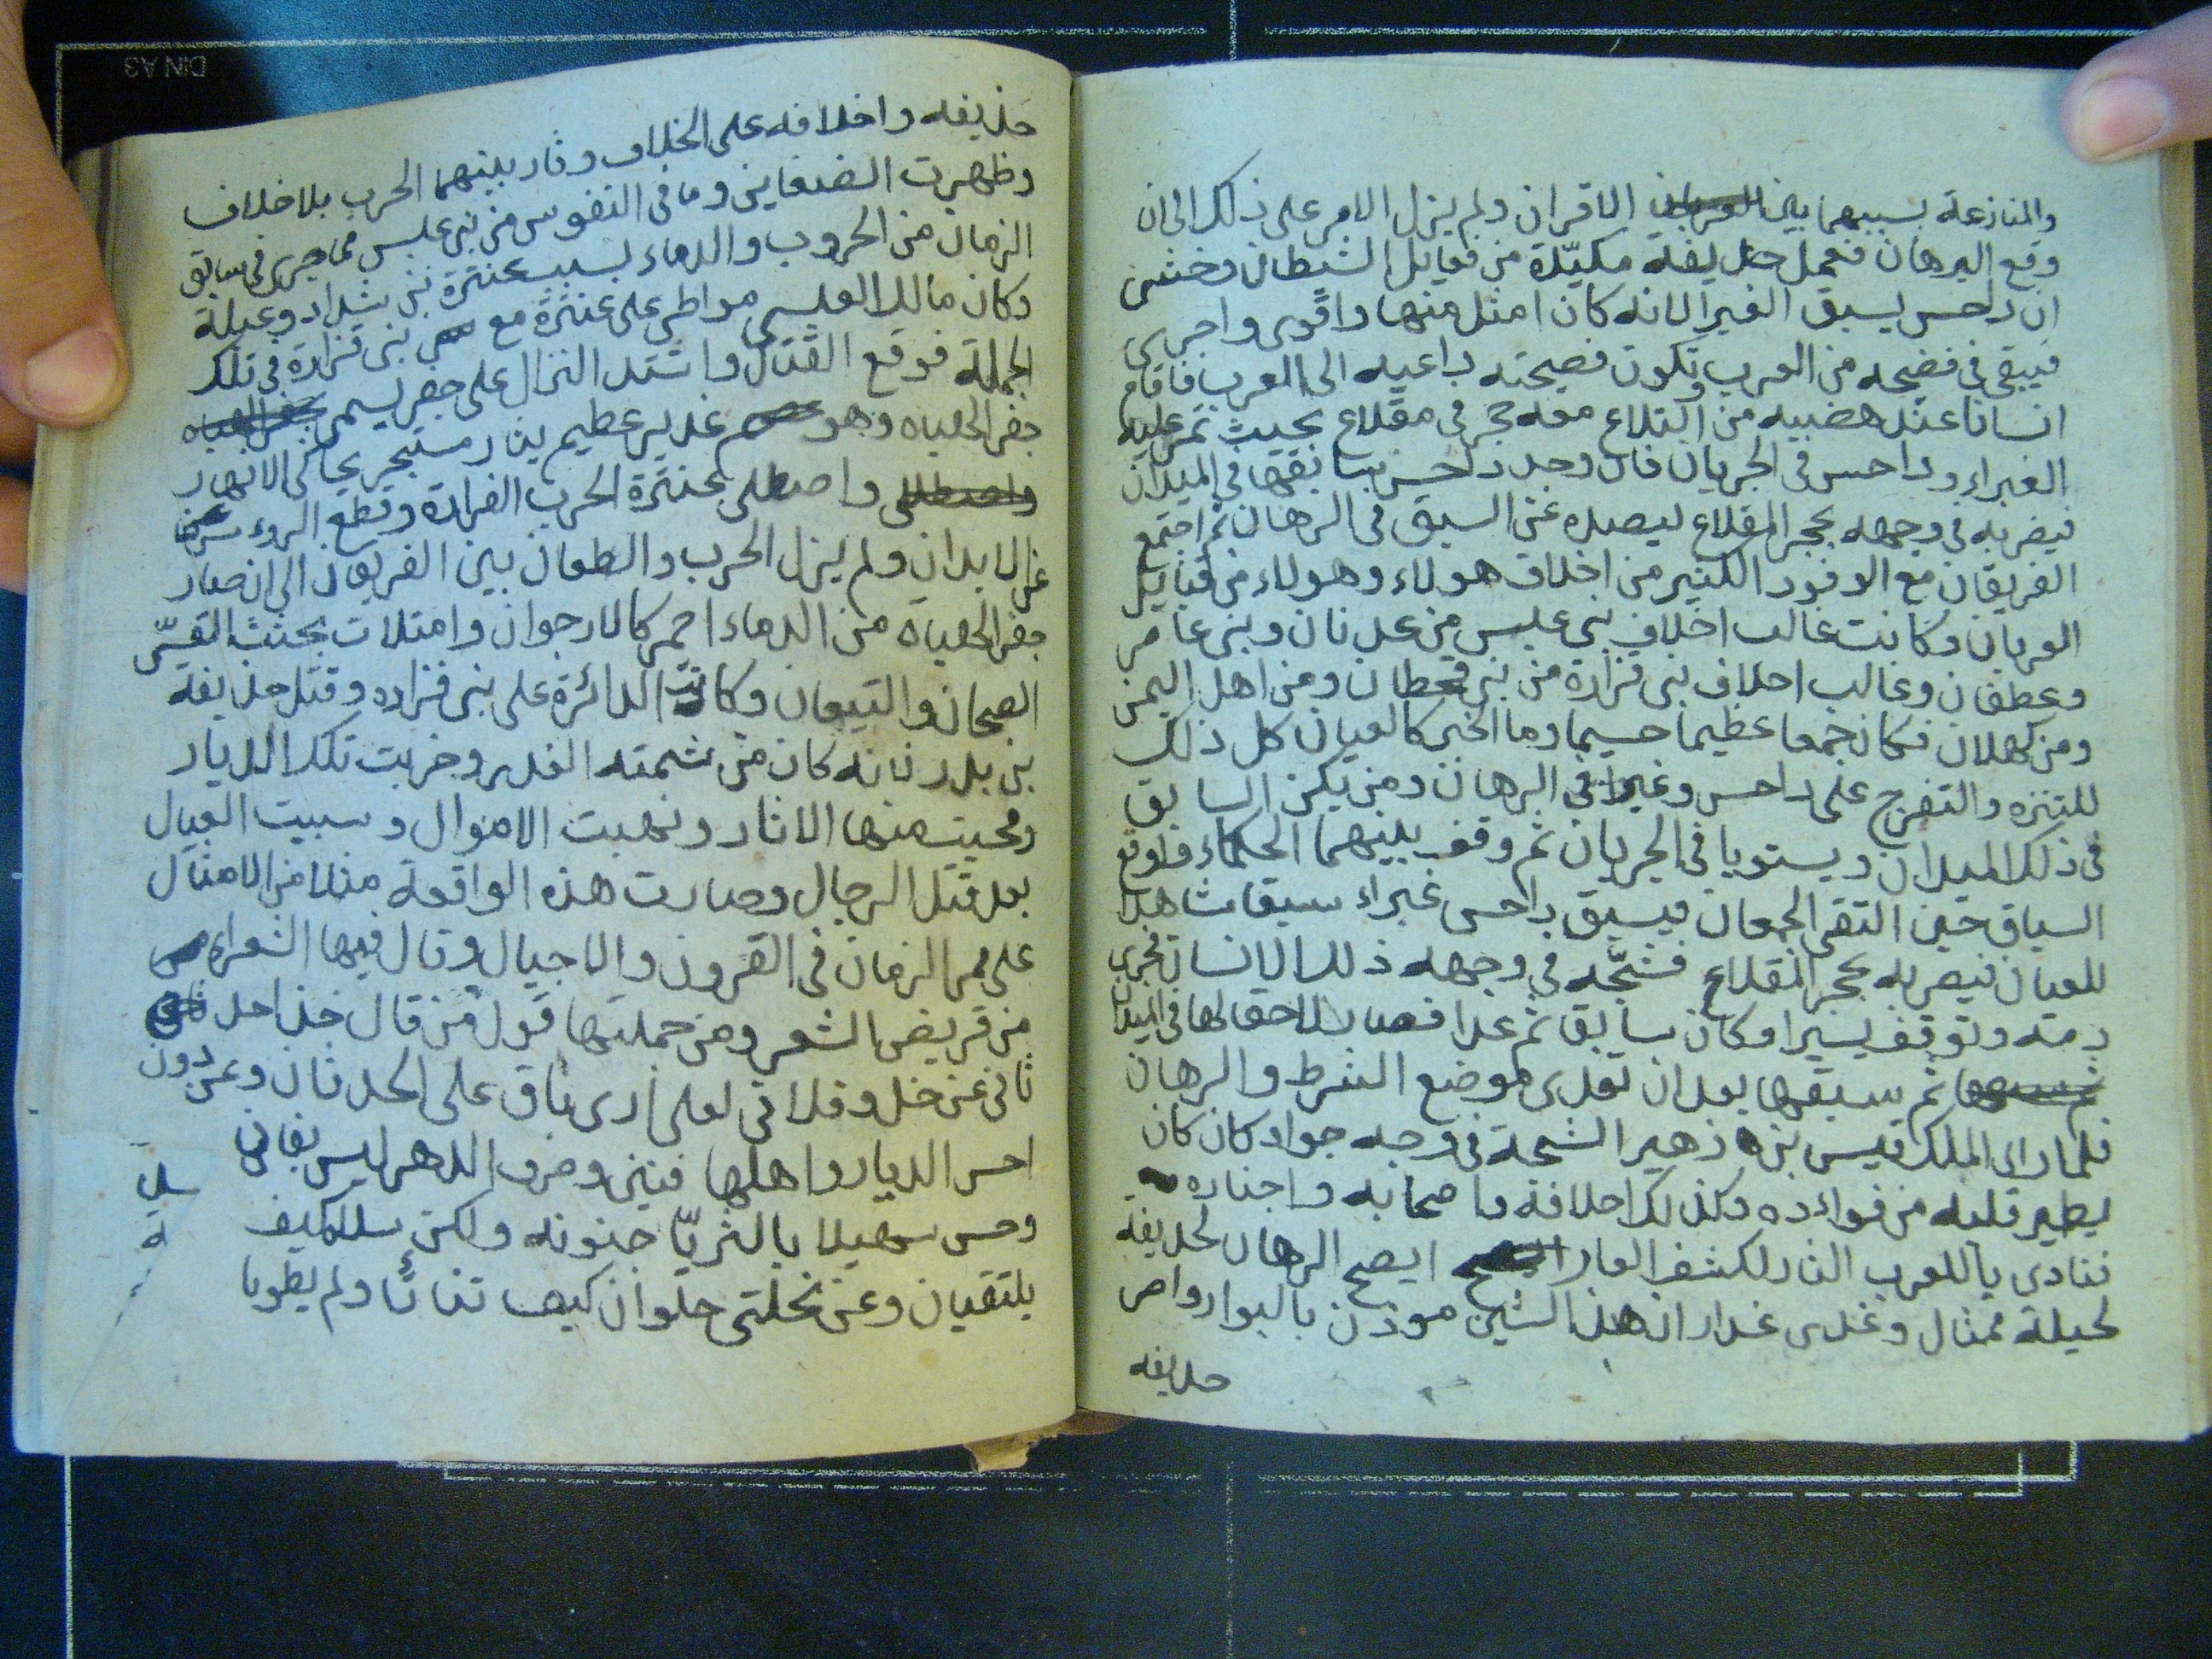 والمنازعة بسببهما بين الاقران ولم يزل الامر على ذلك الى ان
وقع الرهان فعمل حذيفة مكيدة من فعايل الشيطان فخشى
ان داحس يسبق الغبرا لانه كان امثل منها واقوى واجرى
فيبقى فى فضيحه من العرب وتكون فضيحته داعيه الى العرب فاقام
انسانا عند هضبيه من التلاع معه حجر فى مقلاع بحيث تمر عليه
الغبراء وداحس فى الجريان فان وجد داحس سابقها فى الميدان
فيضربه فى وجهه بحجر المقلاع ليصده عن السبق فى الرهان ثم اجتمع
الفريقان مع الوفود الكثير من اخلاف هولاء وهولاء من قبايل
العربان وكانت غالب اخلاف بنى عبس من عدنان وبنى عامر
وعطفان وغالب احلاف بنى فزارة من بنى قحطان ومن اهل اليمن
ومن كهلان فكان جمعا عظيما جسيما وما الخبر كالعيان كل ذلك
للتنزه والتفرج على داحس وغبرا فى الرهان ومن يكن السابق
فى ذلك الميدان ويستويا فى الجريان ثم وقف بينهما الحكماء واوقع
السباق حين التقى الجمعان فيسبق داحس غبراء سبقا شاهدا
للعيان فيضربه بحجر المقلاع فشجه فى وجهه ذلك الانسان فجرى
دمه وتوقف يسيرا وكان سابق ثم عدا فصار للاحق لها فى الميدان
ثم سبقها بعد ان تعدى موضع الشرط والرهان
فلما راى الملك قيس بن زهير الشجة فى وجه جواده كان كان
يطير قلبه من فواءده وكذلك احلافه واصحابه واجناده
فنادى ياللعرب الثار لكشف العار ايصح الرهان لحذيفة
لحيلة ممثال وغدى غدار ان هذا الشين موذن بالبوار واصر
حذيفه
حذيفه واخلافه على الخلاف وثار بينهما الحرب بلا خلاف
وظهرت الضغاين وما فى النفوس من بنى عبس مما جرى فى سابق
الزمان من الحروب والدماء بسبب عنترة بن شداد وعبلة
وكان مالك العبسى مواطى على عنترة مع بنى فزارة فى تلك
الجملة فوقع القتال واشتد النزال على جفر يسمى
جفر الهباه وهو غدير عظيم يثار مستبحر يحاكى الانهار
واصطلى عنترة الحرب الفرادة وقطع الروءس
عن الابدان ولم يزل الحرب والطعان بين الفريقان الى ان صار
جفر الهباه من الدماء احمر كالارجوان وامتلات بجثث القسى
الصحان والتيعان وكانت الدائرة على بنى فزاره وقتل حذيفة
بن بدر فانه كان من شيمته الغدر وخربت تلك الديار
ومحيت منها الاثار ونهبت الاموال وسبيت العيال
بعد قتل الرجال وصارت هذه الواقعة مثلا من الامثال
على ممر الزمان فى القرون والاجيال وقال فيها الشعراء
من قريض الشعر ومن جملتها قول من قال خذا حد
ثانى عن خل وفلا تى لعلى ارى باق على الحدثان وعن دون
احس الديار واهلها فنين وصرف الدهر ليس بفانى
وحسى سهيلا بالثريا جنونه ولكن سلا كيف
يلتقيان وعن نخلتى حلوان كيف تنائا ولم يطويا